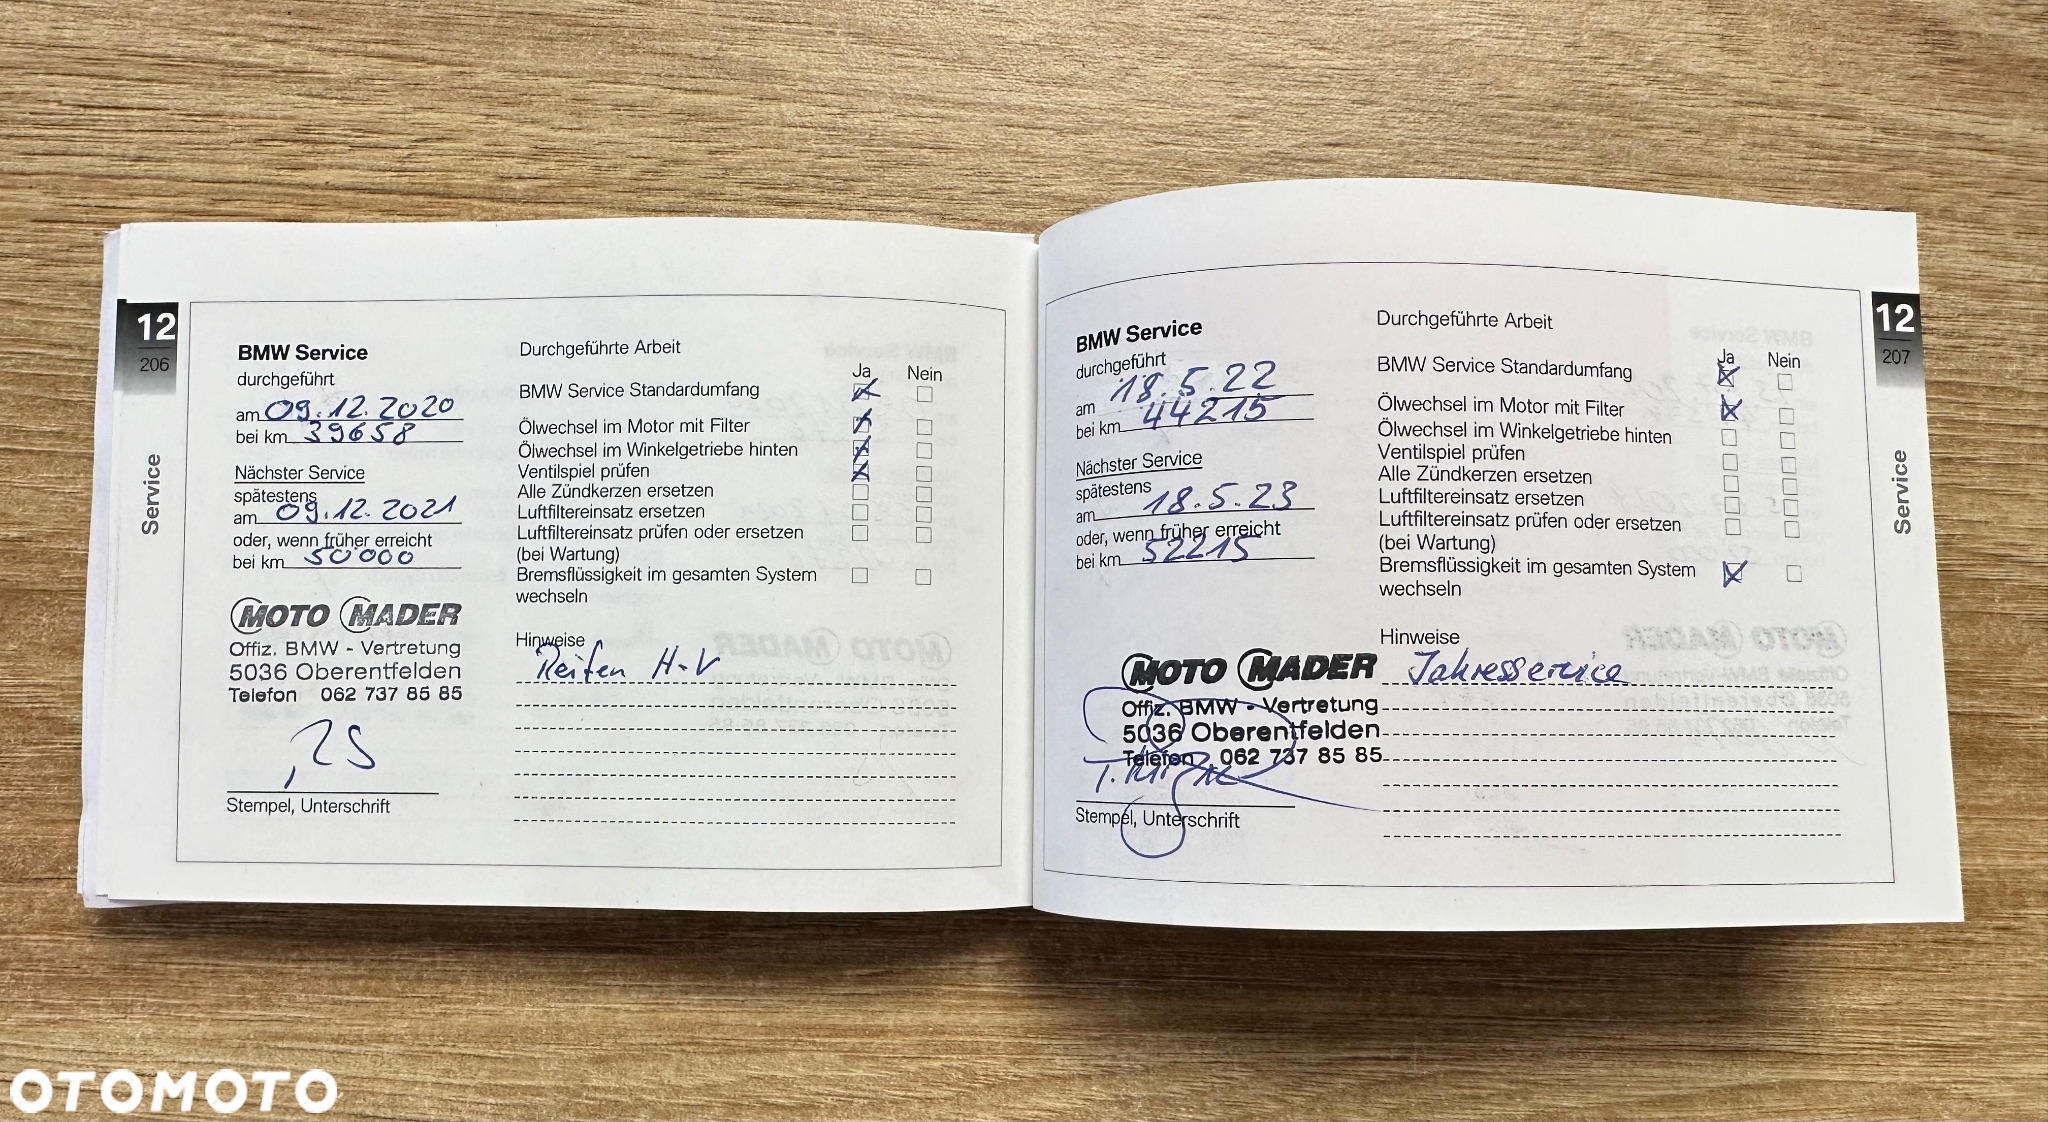 12
206
Service
BMW Service
durchgeführt
am 09.12.2020
bei km 39658
Nächster Service
spätestens
am 09.12.2021
oder, wenn früher erreicht
bei km 50000
MOTO MADER
Offiz. BMW - Vertretung
5036 Oberentfelden
Telefon 062 737 85 85
Stempel, Unterschrift
Durchgeführte Arbeit
Ja Nein
BMW Service Standardumfang
Ölwechsel im Motor mit Filter
Ölwechsel im Winkelgetriebe hinten
Ventilspiel prüfen
Alle Zündkerzen ersetzen
Luftfiltereinsatz ersetzen
Luftfiltereinsatz prüfen oder ersetzen
(bei Wartung)
Bremsflüssigkeit im gesamten System
wechseln
Hinweise
Reifen H+V
BMW Service
durchgeführt
am 18.5.22
bei km 44215
Nächster Service
spätestens
am 18.5.23
oder, wenn früher erreicht
bei km 52215
MOTO MADER
Offiz. BMW - Vertretung
5036 Oberentfelden
Telefon 062 737 85 85
Stempel, Unterschrift
Durchgeführte Arbeit
Ja Nein
BMW Service Standardumfang
Ölwechsel im Motor mit Filter
Ölwechsel im Winkelgetriebe hinten
Ventilspiel prüfen
Alle Zündkerzen ersetzen
Luftfiltereinsatz ersetzen
Luftfiltereinsatz prüfen oder ersetzen
(bei Wartung)
Bremsflüssigkeit im gesamten System
wechseln
Hinweise
Jahresservice
12
207
Service
OTOMOTO